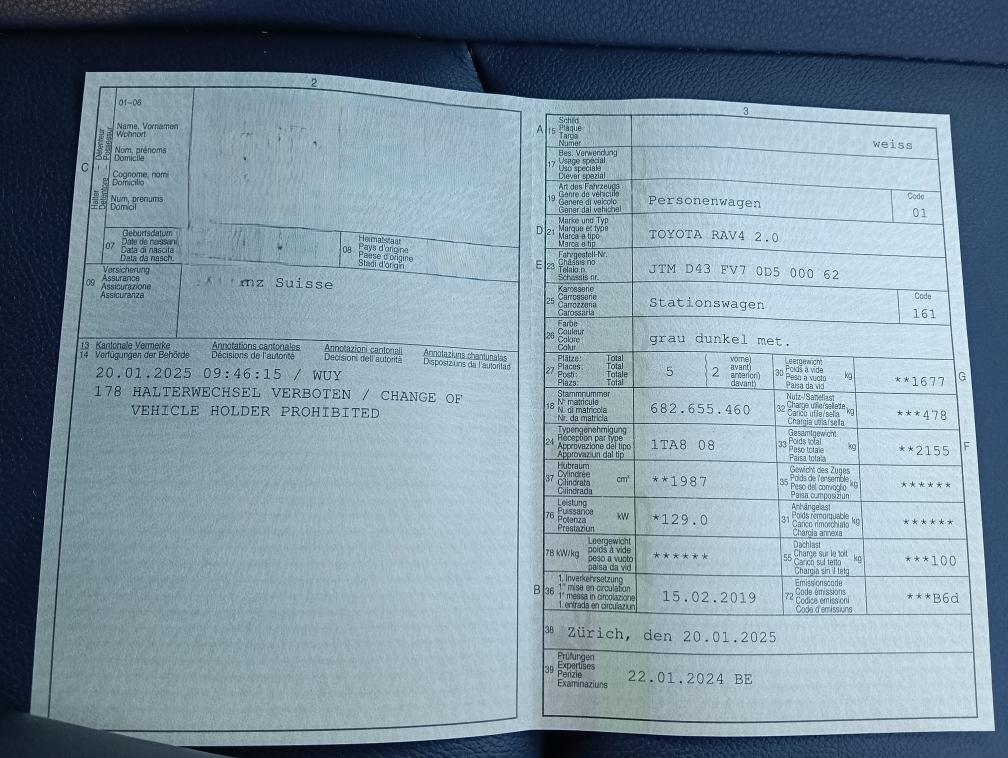 2
01-06
Halter - Détenteur
Detentore - Possessur
C
Name, Vornamen
Wohnort
Nom, prénoms
Domicile
Cognome, nomi
Domicilio
Num, prenums
Domicil
07
Geburtsdatum
Date de naissanc
Data di nascita
Data da nasch.
08
Heimatstaat
Pays d'origine
Paese d'origine
Stadi d'origin
09
Versicherung
Assurance
Assicurazione
Assicuranza
mz Suisse
13 Kantonale Vermerke Annotations cantonales Annotazioni cantonali Annotaziuns chantunalas
14 Verfügungen der Behörde Décisions de l'autorité Decisioni dell'autorità Disposiziuns da l'autoritad
20.01.2025 09:46:15 / WUY
178 HALTERWECHSEL VERBOTEN / CHANGE OF
VEHICLE HOLDER PROHIBITED
3
A 15
Schild
Plaque
Targa
Numer
weiss
17
Bes. Verwendung
Usage spécial
Uso speciale
Diever spezial
19
Art des Fahrzeugs
Genre de véhicule
Genere di veicolo
Gener dal vehichel
Personenwagen
Code
01
D 21
Marke und Typ
Marque et type
Marca e tipo
Marca e tip
TOYOTA RAV4 2.0
E 23
Fahrgestell-Nr.
Châssis no
Telaio n.
Schassis nr.
JTM D43 FV7 0D5 000 62
25
Karosserie
Carrosserie
Carrozzeria
Carossaria
Stationswagen
Code
161
26
Farbe
Couleur
Colore
Colur
grau dunkel met.
27
Plätze: Total
Places: Total
Posti: Totale
Plazs: Total
5
2
vorne)
avant)
anteriori)
davant)
30
Leergewicht
Poids à vide
Peso a vuoto
Paisa da vid
kg
**1677
G
18
Stammnummer
N° matricule
N. di matricola
Nr. da matricla
682.655.460
32
Nutz-/Sattellast
Charge utile/sellette
Carico utile/sella
Chargia utila/sella
kg
***478
24
Typengenehmigung
Réception par type
Approvazione del tipo
Approvaziun dal tip
1TA8 08
33
Gesamtgewicht
Poids total
Peso totale
Paisa totala
kg
**2155
F
37
Hubraum
Cylindrée
Cilindrata
Cilindrada
cm³
**1987
35
Gewicht des Zuges
Poids de l'ensemble
Peso del convoglio
Paisa cumposiziun
kg
******
76
Leistung
Puissance
Potenza
Prestaziun
kW
*129.0
31
Anhängelast
Poids remorquable
Carico rimorchiato
Chargia annexa
kg
******
78 kW/kg
Leergewicht
poids à vide
peso a vuoto
paisa da vid
******
55
Dachlast
Charge sur le toit
Carico sul tetto
Chargia sin il tetg
kg
***100
B 36
1. Inverkehrsetzung
1re mise en circulation
1a messa in circolazione
1. entrada en circulaziun
15.02.2019
72
Emissionscode
Code émissions
Codice emissioni
Code d'emissiuns
***B6d
38 Zürich, den 20.01.2025
39
Prüfungen
Expertises
Perizie
Examinaziuns
22.01.2024 BE